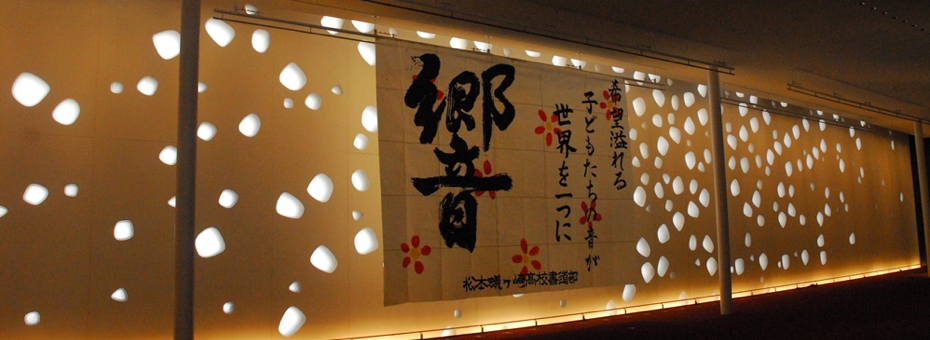 希望溢れる
子どもたちの音が
世界を一つに
響
松本蟻ヶ崎高校書道部